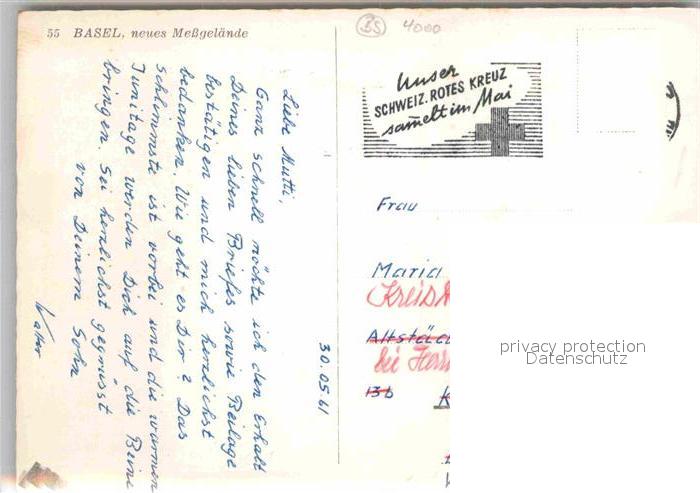 55 BASEL, neues Meßgelände
BS 4000
Unser
SCHWEIZ. ROTES KREUZ
sammelt im Mai
30.05.61
Liebe Mutti,
Ganz schnell möchte ich den Erhalt
Deines lieben Briefes sowie Beilage
bestätigen und mich herzlichst
bedanken. Wie geht es Dir? Das
Schlimmste ist vorbei und die warmen
Junitage werden Dich auf die Beine
bringen. Sei herzlichst gegrüsst
von Deinem Sohn
Walter
Frau
Maria
Kreis
Altstä
bei
13b
privacy protection
Datenschutz